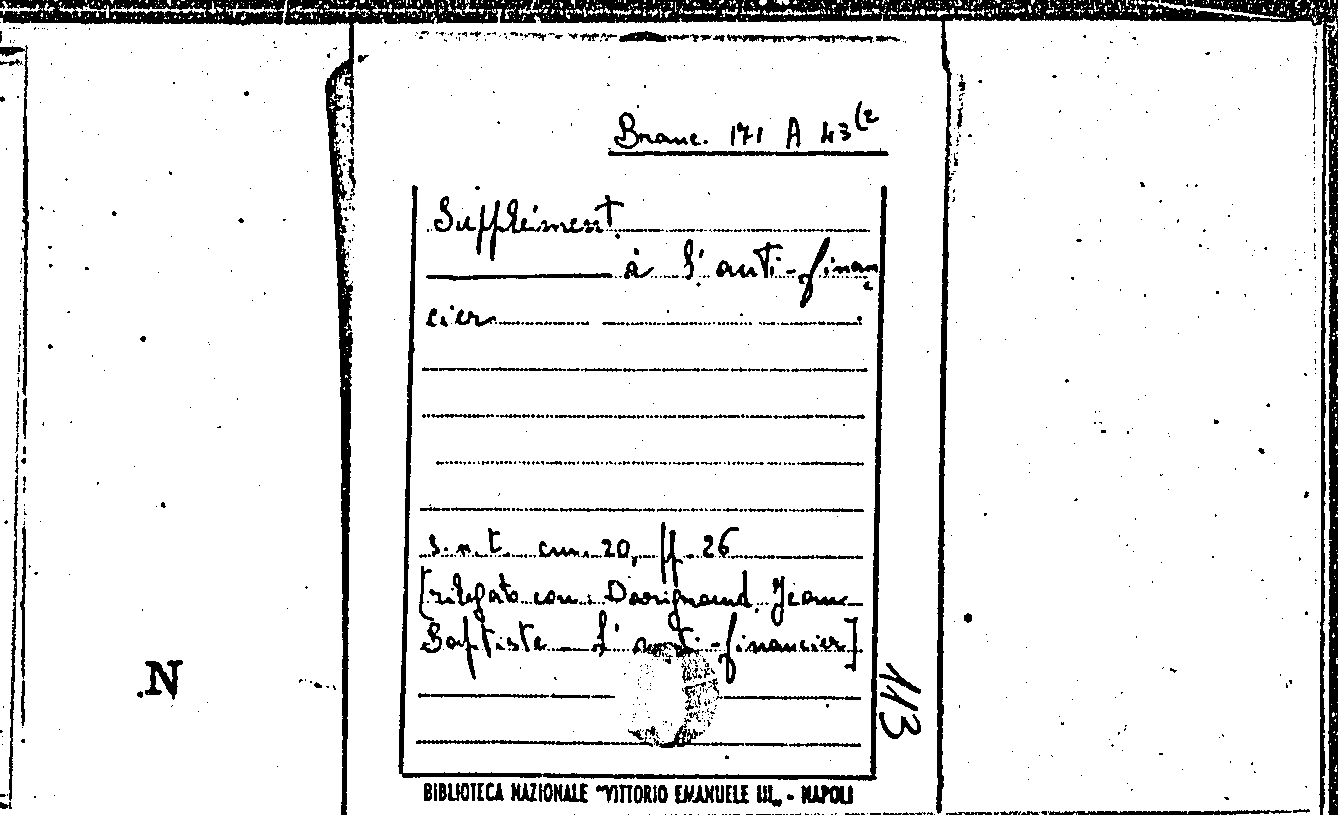 Branc. 171 A 43(2
Supplément
à l'anti-finan
cier
s.n.t. cm. 20, ff. 26
[rilegato con: Darigrand, Jean-
Baptiste - L'anti-financier]
113
.N
BIBLIOTECA NAZIONALE "VITTORIO EMANUELE III„ - NAPOLI